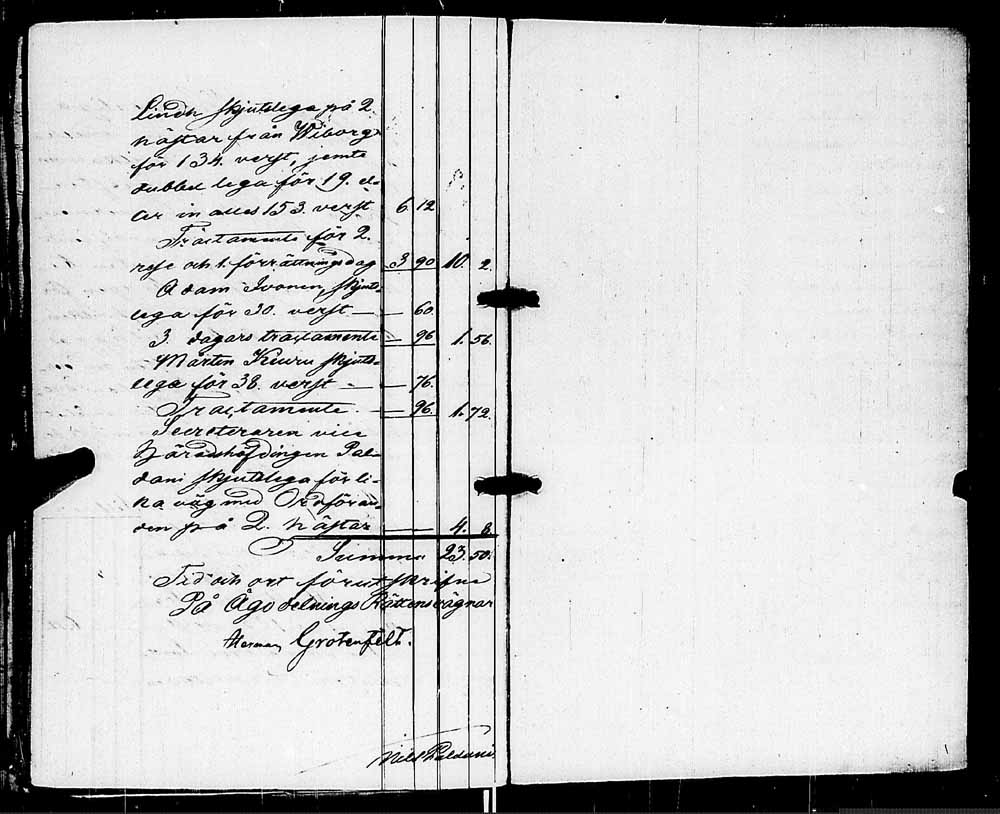 Lindh skjutslega på 2.
hästar från Wiborg
för 134. verst, jemte
dubbel lega för 19. d:o
är in alles 153. verst 6. 12
Tractamente för 2.
rese och 1. förrättningsdag 3 90 10. 2.
Adam Ivonen, skjuts-
lega för 30. verst — — 60.
3. dagars tractamente — 96 1. 56.
Mårten Keuru skjuts-
lega för 38. verst — — 76.
Tractamente. — 96. 1. 72.
Secreteraren vice
Häradshöfdingen Pal-
dani skjutslega för li-
ka väg med Ordföran-
den på 2. hästar — 4. 8.
Summa 23. 50.
Tid och ort förutskrifne
På Ägodelnings Rättens vägnar
Herman Grotenfelt.
Nils Paldani